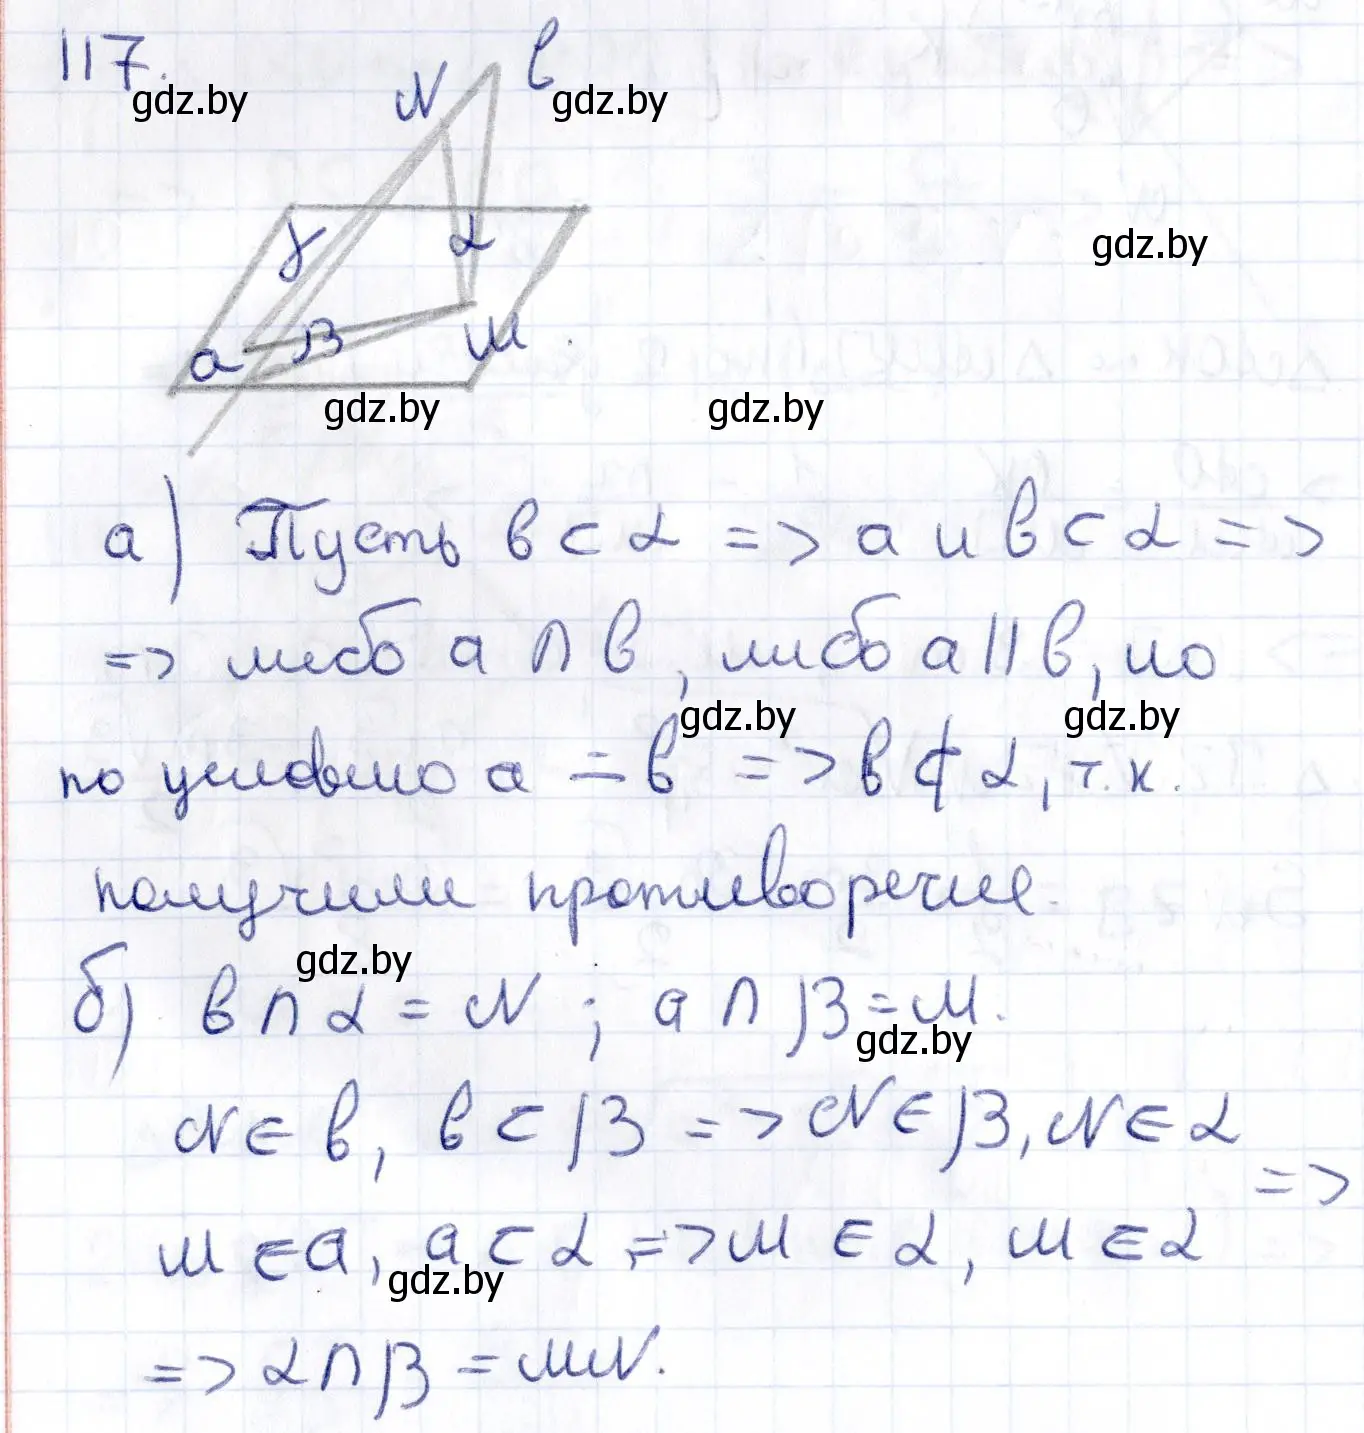 117.
gdz.by
N
b
gdz.by
γ
α
gdz.by
a
β
M
gdz.by
gdz.by
а) Пусть b ⊂ α => a и b ⊂ α =>
=> либо a ∩ b, либо a || b, но
gdz.by
gdz.by
по условию a ∸ b => b ⊄ α, т.к.
получили противоречие.
gdz.by
б) b ∩ α = N ; a ∩ β = M.
gdz.by
N ∈ b, b ⊂ β => N ∈ β, N ∈ α
=>
M ∈ a, a ⊂ α => M ∈ α, M ∈ α
gdz.by
=> α ∩ β = MN.